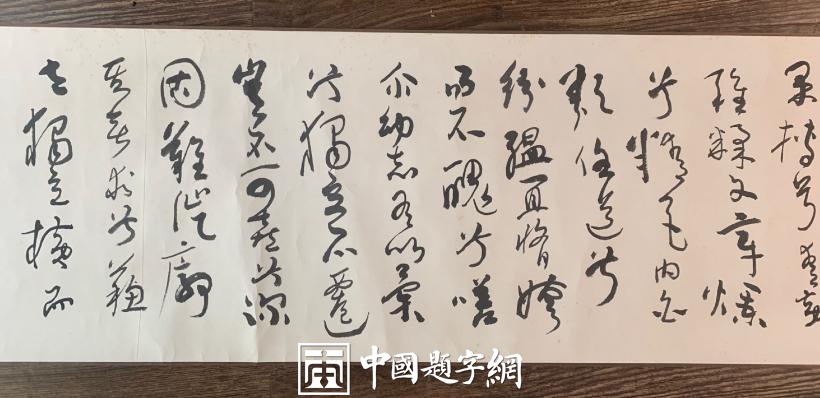 果摶兮青黄
雜糅文章爛
兮精色内白
類任道兮
紛緼宜脩姱
而不醜兮嗟
尔幼志有以異
兮獨立不遷
豈不可喜兮深
固難徙廓
其無求兮蘇
世獨立橫而
中國題字網